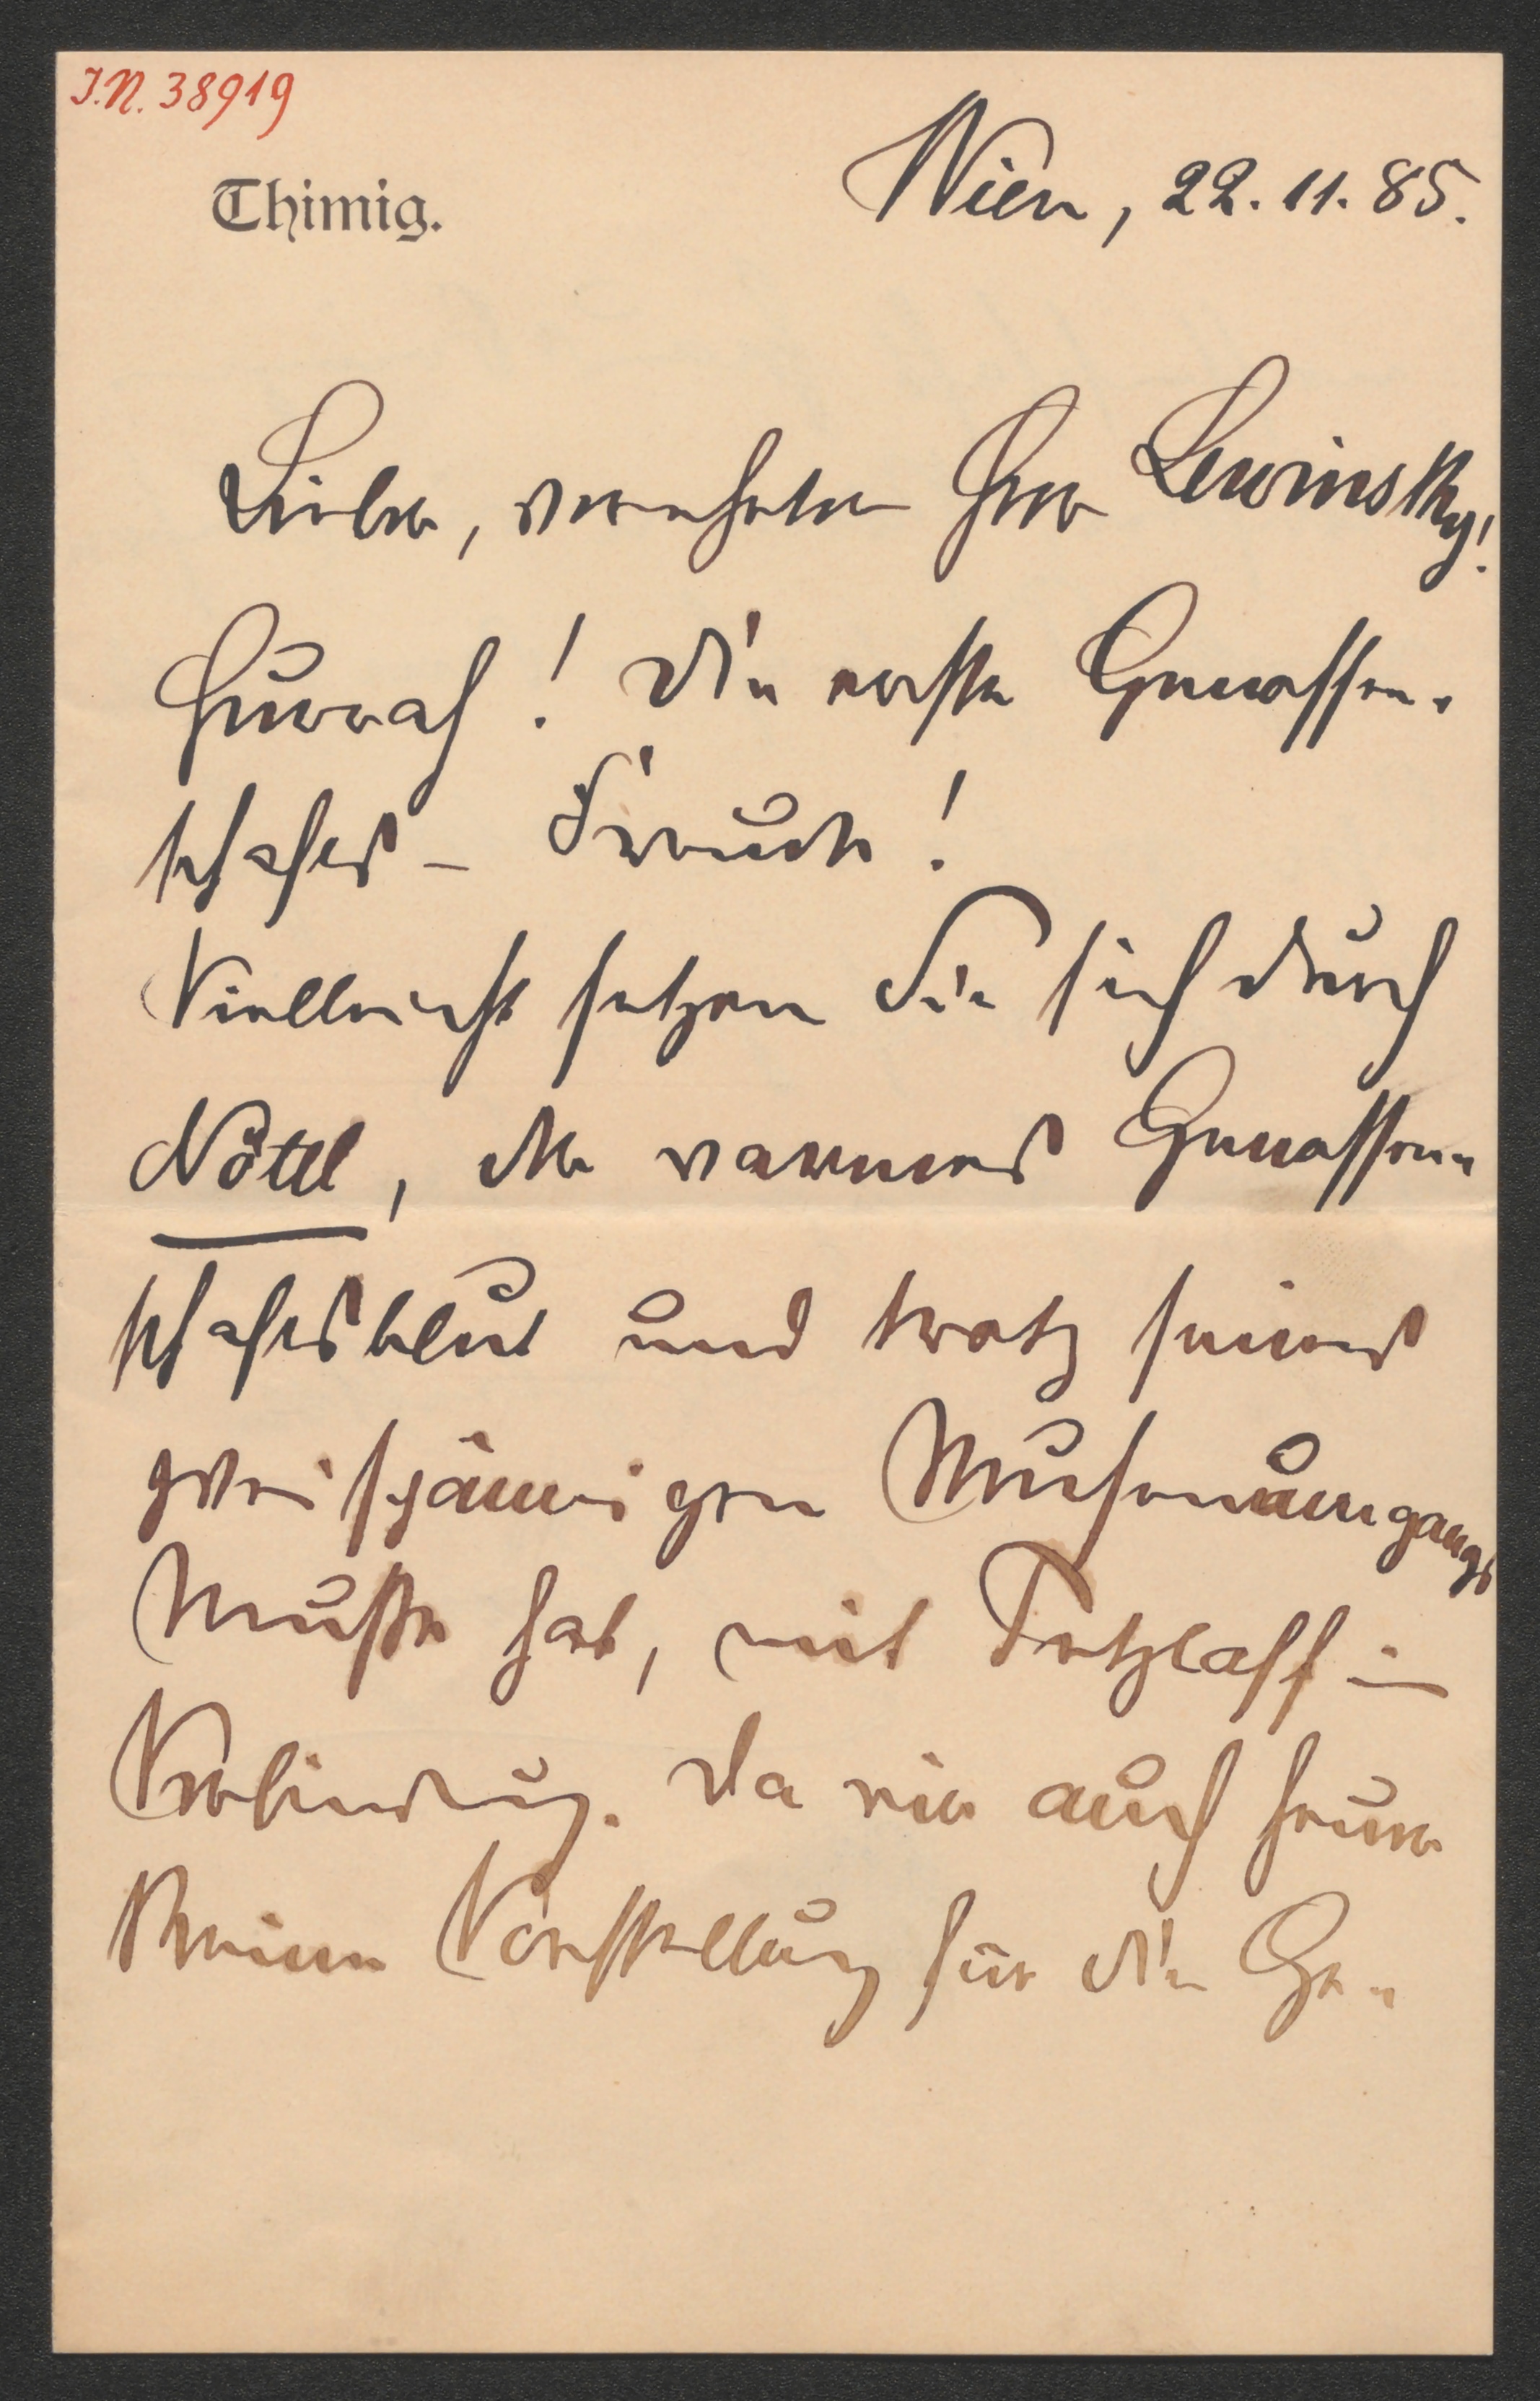 J.N. 38919
Thimig.
Wien, 22. 11. 85.
Lieber, verehrter Herr Lewinsky!
Hurrah! Die erste Genossen-
schafts-Freude!
Vielleicht setzen Sie sich durch
Nöttl, der warmes Genossen-
schaftsblut und trotz seines
zweispännigen Musenumgangs
Muße hat, mit Tetzlaff in
Verbindung. Da wir auch heuer
keine Vorstellung für die Ge-